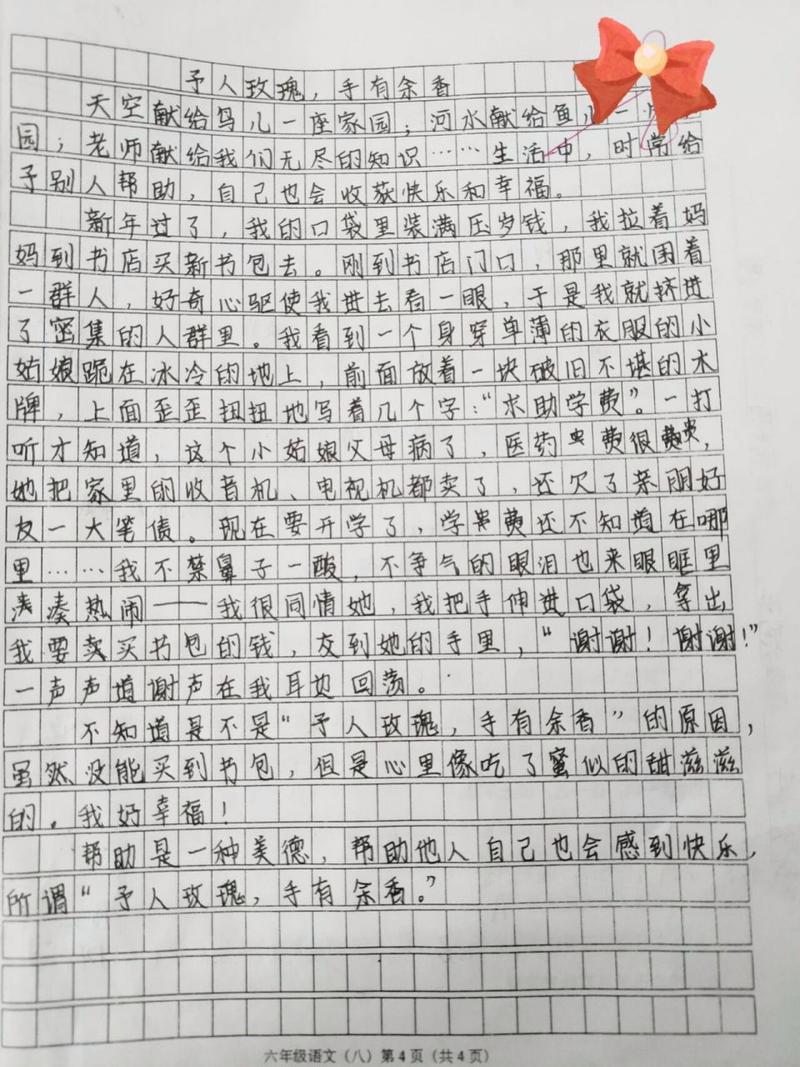 予人玫瑰，手有余香
天空献给鸟儿一座家园；河水献给鱼儿一
园；老师献给我们无尽的知识……生活中，时常给
予别人帮助，自己也会收获快乐和幸福。
新年过了，我的口袋里装满压岁钱，我拉着妈
妈到书店买新书包去。刚到书店门口，那里就围着
一群人，好奇心驱使我进去看一眼，于是我就挤进
了密集的人群里。我看到一个身穿单薄的衣服的小
姑娘跪在冰冷的地上，前面放着一块破旧不堪的木
牌，上面歪歪扭扭地写着几个字：“求助学费”。一打
听才知道，这个小姑娘父母病了，医药费很贵，
她把家里的收音机、电视机都卖了，还欠了亲朋好
友一大笔债。现在要开学了，学费还不知道在哪
里……我不禁鼻子一酸，不争气的眼泪也来眼眶里
凑凑热闹——我很同情她，我把手伸进口袋，拿出
我要卖买书包的钱，交到她的手里，“谢谢！谢谢！”
一声声道谢声在我耳边回荡。
不知道是不是“予人玫瑰，手有余香”的原因，
虽然没能买到书包，但是心里像吃了蜜似的甜滋滋
的。我好幸福！
帮助是一种美德，帮助他人自己也会感到快乐，
所谓“予人玫瑰，手有余香。”
六年级语文（八）第4页（共4页）